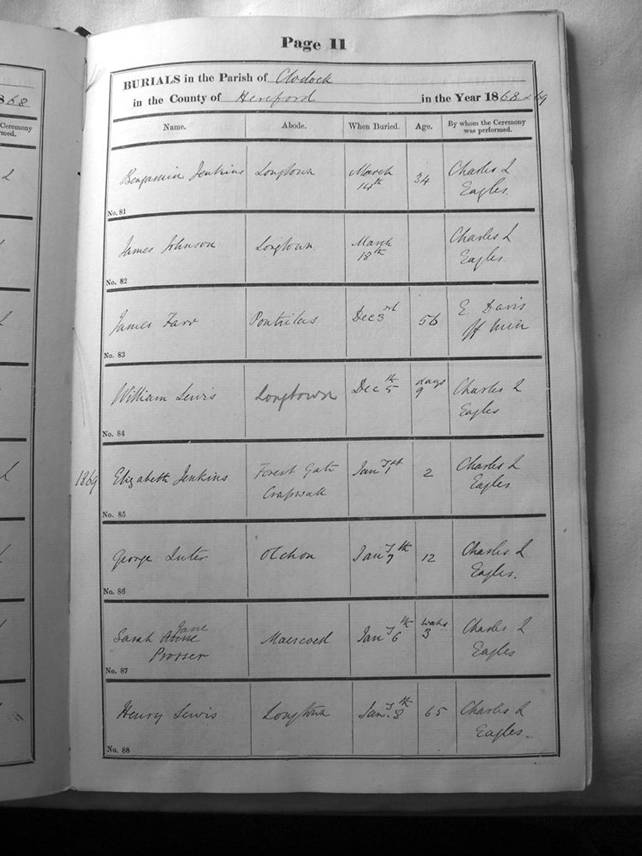 Page 11
BURIALS in the Parish of Clodock
in the County of Hereford in the Year 1868 & 69
Name. Abode. When Buried. Age. By whom the Ceremony was performed.
Benjamin Jenkins Longtown March 14th 34 Charles L Eagles.
No. 81
James Johnson Longtown March 18th Charles L Eagles.
No. 82
James Farr Pontrilas Dec 3rd 56 E. Davis Off Min
No. 83
William Lewis Longtown Dec 5th days 9 Charles L Eagles
No. 84
1869 Elizabeth Jenkins Forest Gate Jany 1st 2 Charles L Eagles
No. 85
George Olchon Jany 7th 12 Charles L Eagles.
No. 86
Sarah Jane Prosser Jany 6th weeks 3 Charles L Eagles
No. 87
Henry Lewis Longtown Jany 8th 65 Charles L Eagles.
No. 88
868
Ceremony
med.